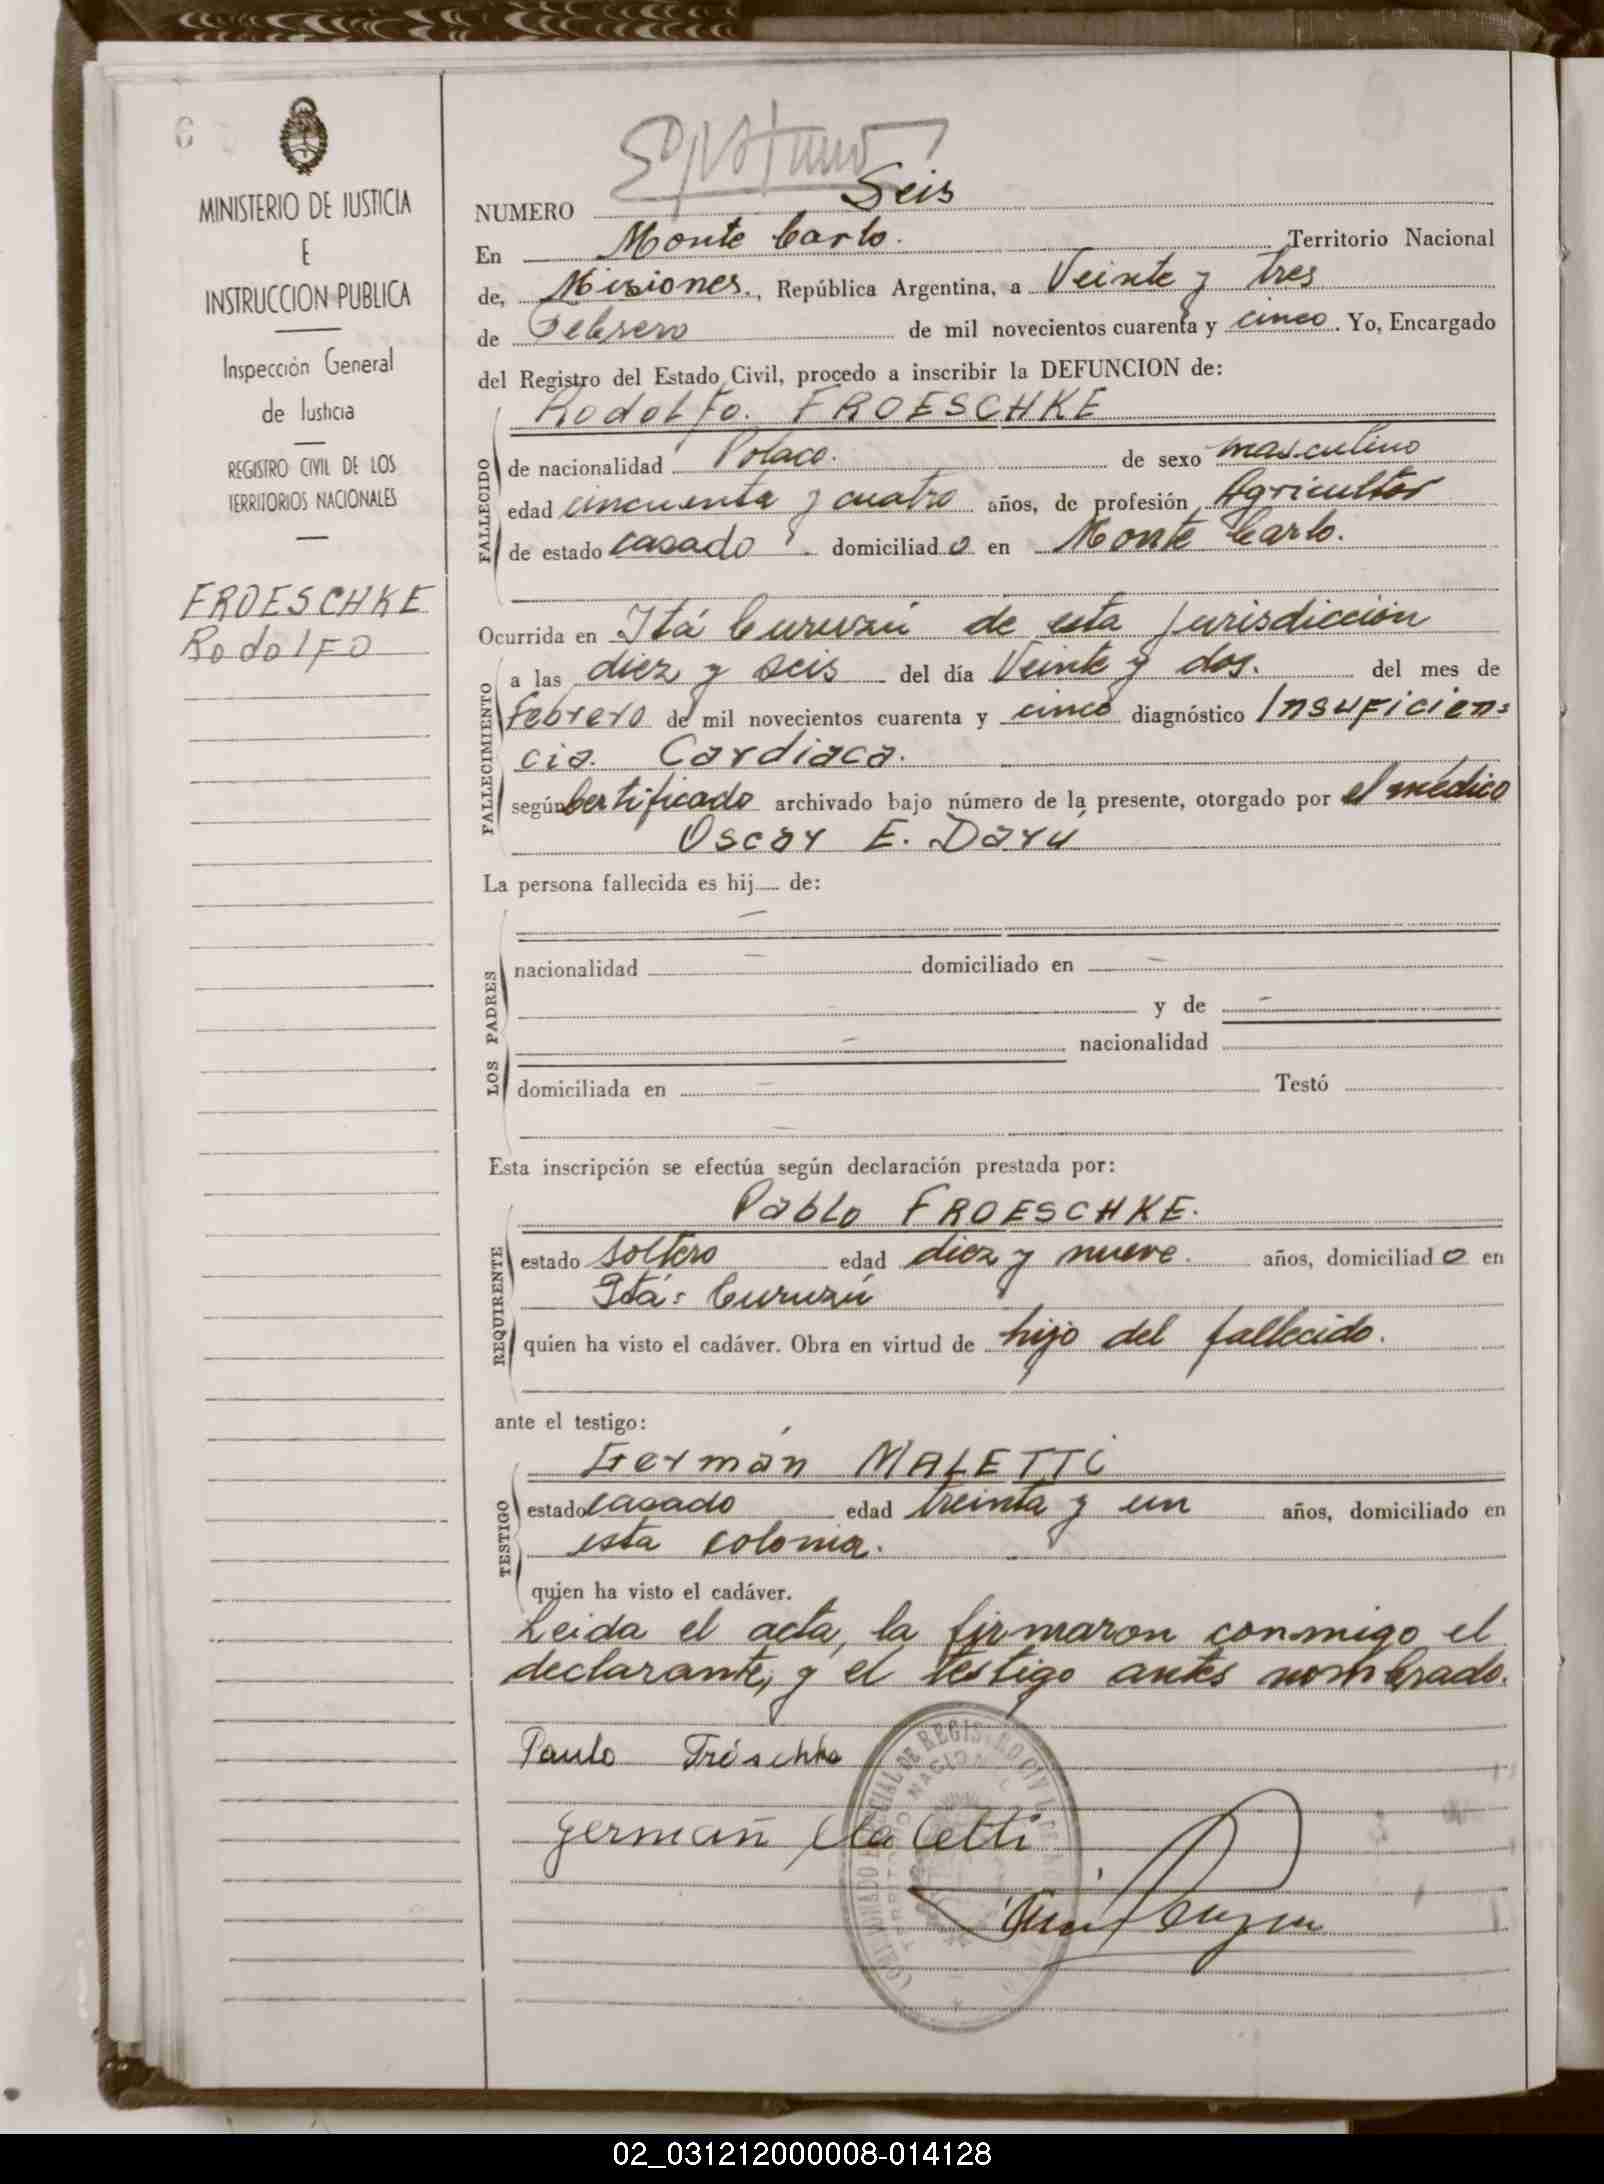 6
MINISTERIO DE JUSTICIA
E
INSTRUCCION PUBLICA
Inspección General
de Justicia
REGISTRO CIVIL DE LOS
TERRITORIOS NACIONALES
FROESCHKE
RodolFO
NUMERO Seis
En Monte Carlo. Territorio Nacional
de, Misiones., República Argentina, a Veinte y tres
de Febrero de mil novecientos cuarenta y cinco. Yo, Encargado
del Registro del Estado Civil, procedo a inscribir la DEFUNCION de:
RodolFo. FROESCHKE
FALLECIDO
de nacionalidad Polaco. de sexo masculino
edad cincuenta y cuatro años, de profesión Agricultor
de estado casado domiciliado en Monte Carlo.
Ocurrida en Itá Curuzú de esta jurisdicción
FALLECIMIENTO
a las diez y seis del día Veinte y dos. del mes de
Febrero de mil novecientos cuarenta y cinco diagnóstico InsuFicien=
cia. Cardiaca.
según Certificado archivado bajo número de la presente, otorgado por el médico
Oscar E. Darú
La persona fallecida es hij de:
LOS PADRES
nacionalidad domiciliado en
y de
nacionalidad
domiciliada en Testó
Esta inscripción se efectúa según declaración prestada por:
Pablo FROESCHKE.
REQUIRENTE
estado soltero edad diez y nueve. años, domiciliado en
Itá= Curuzú
quien ha visto el cadáver. Obra en virtud de hijo del fallecido.
ante el testigo:
Germán MALETTI
TESTIGO
estado casado edad treinta y un años, domiciliado en
esta colonia.
quien ha visto el cadáver.
Leida el acta, la firmaron conmigo el
declarante, y el testigo antes nombrado.
Paulo Fröschke
German Maletti
02_031212000008-014128